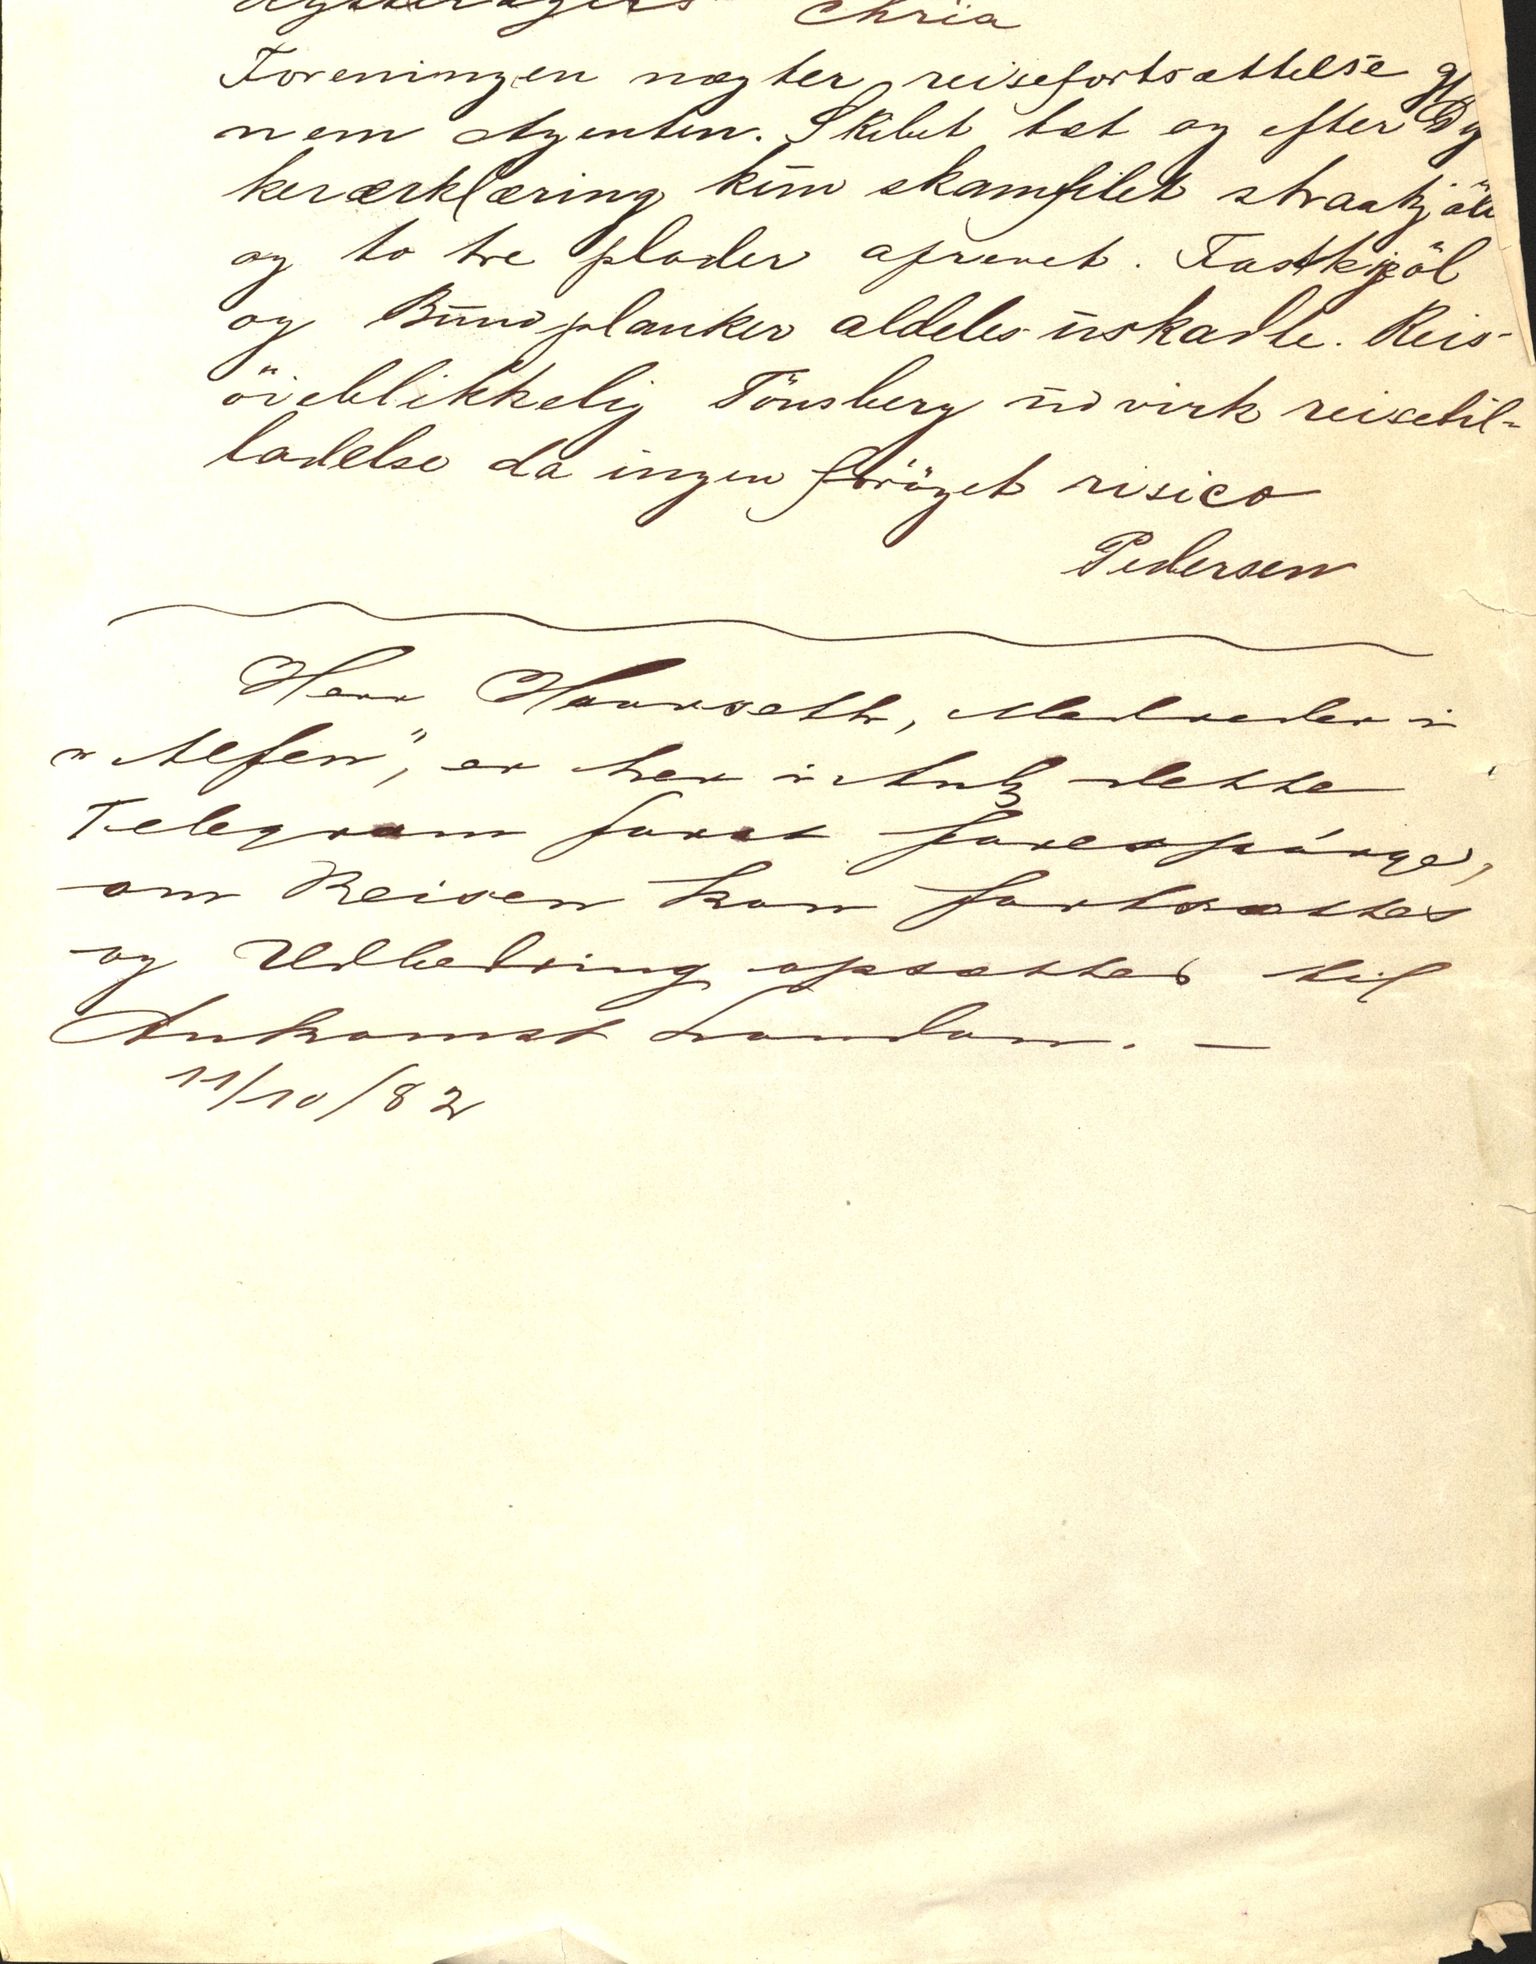 Chria
Foreningen nægter reisefortsættelse gj
nem Agenten. Skibet tæt og efter Dy
kerærklæring kün skamfilet straakjöl
og to tre plader afrevet. Fastkjöl
og Bündplanker aldeles üskadte. Reis-
öieblikkelig Tönsberg üdvirk reisetil-
ladelse da ingen foröget risico
Pedersen
Herr Haarseth, Medreder i
"Alfen", er her i Anl dette
Telegram først forespörge,
om Reisen kan fortsættes
og Udbedring opsættes til
Ankomst London. —
11/10/82